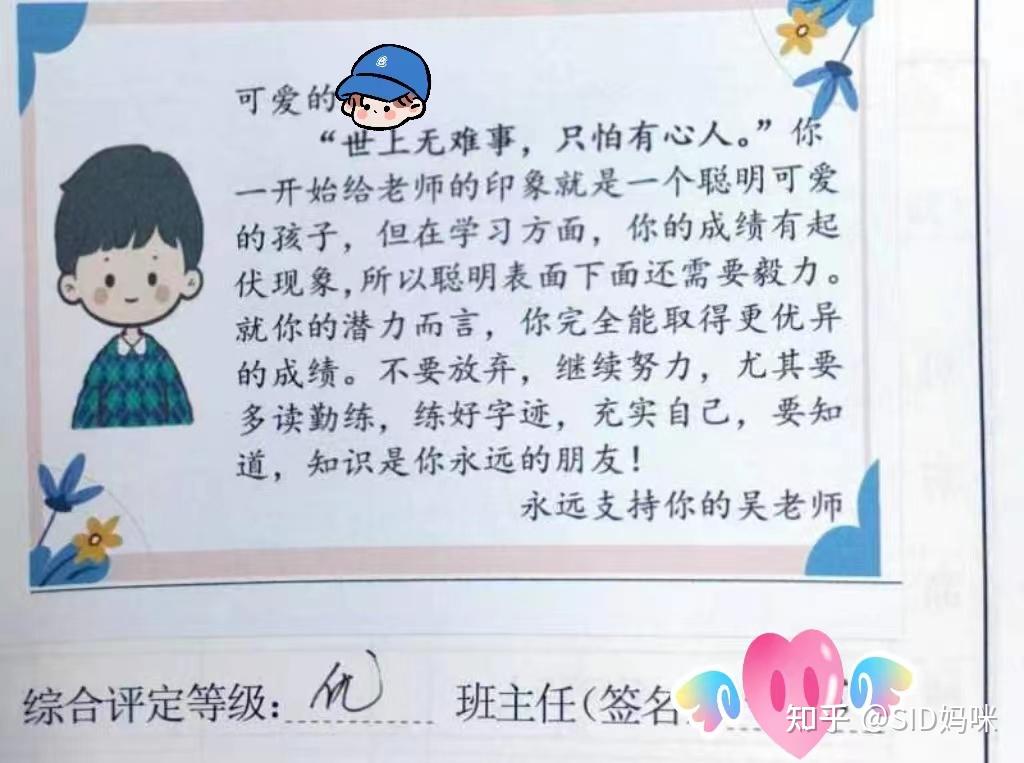 可爱的
“世上无难事，只怕有心人。”你
一开始给老师的印象就是一个聪明可爱
的孩子，但在学习方面，你的成绩有起
伏现象，所以聪明表面下面还需要毅力。
就你的潜力而言，你完全能取得更优异
的成绩。不要放弃，继续努力，尤其要
多读勤练，练好字迹，充实自己，要知
道，知识是你永远的朋友！
永远支持你的吴老师
综合评定等级：优 班主任（签名
知乎 @SID妈咪